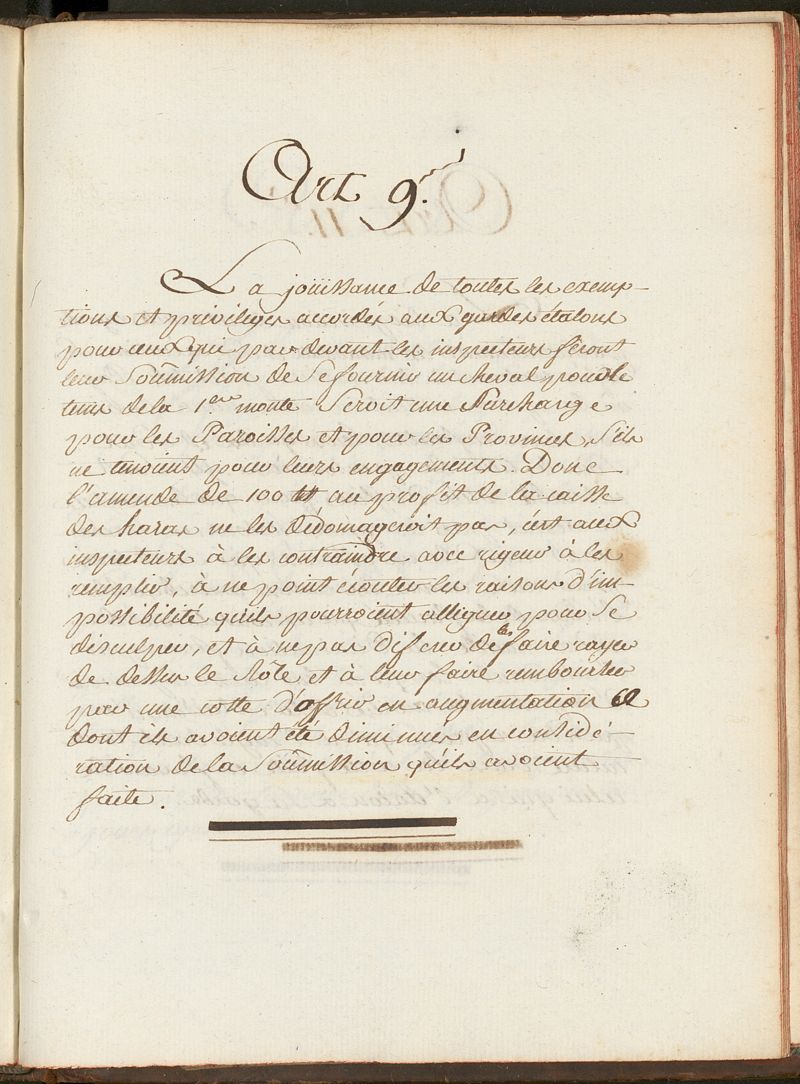 Art 9.
La joüissance de toutes les exemp-
tions et privileges accordés aux gardes étalons
pour ceux qui par devant les inspecteurs feront
leur Soûmission de Se fournir un cheval pour le
tems de la 1.ere monte Seroit une Surcharge
pour les Paroisses et pour les Provinces, S'ils
ne tenoient pour leurs engagements. Donc
l'amende de 100 ₶ au profit de la caisse
des haras ne les dédomageroit pas, c'est aux
inspecteurs à les contraindre avec rigeur à les
remplir, à ne point écouter les raisons d'im-
possibilité qu'ils pourroient alleguer pour Se
disculper, et à ne pas diferer de les faire rayer
de dessus le Rôle et à leur faire rembourser
par une cotte d'offic en augmentation ce
dont ils avoient été diminués en considé-
ration de la Soûmission qu'ils avoient
faite.